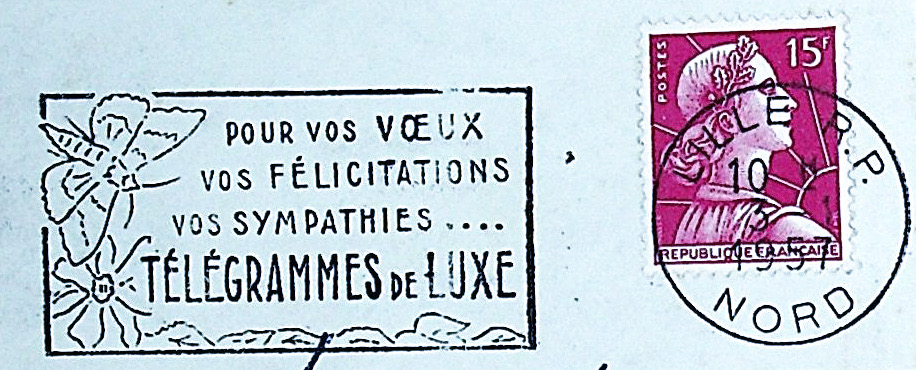 POUR VOS VŒUX
VOS FÉLICITATIONS
VOS SYMPATHIES ....
TÉLÉGRAMMES DE LUXE
POSTES
15F
REPUBLIQUE FRANÇAISE
LILLE R.P.
10 H
3 1
1957
NORD